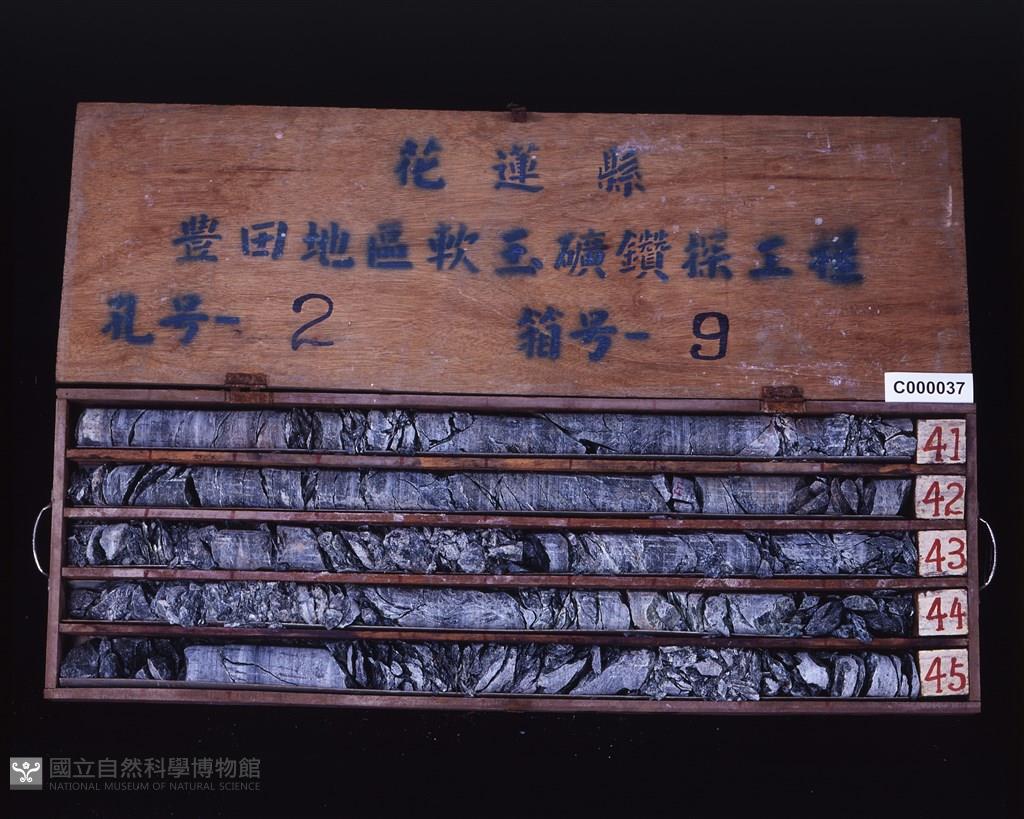 花蓮縣
豊田地區軟玉礦鑽探工程
孔号-2 箱号-9
C000037
41
42
43
44
45
國立自然科學博物館
NATIONAL MUSEUM OF NATURAL SCIENCE